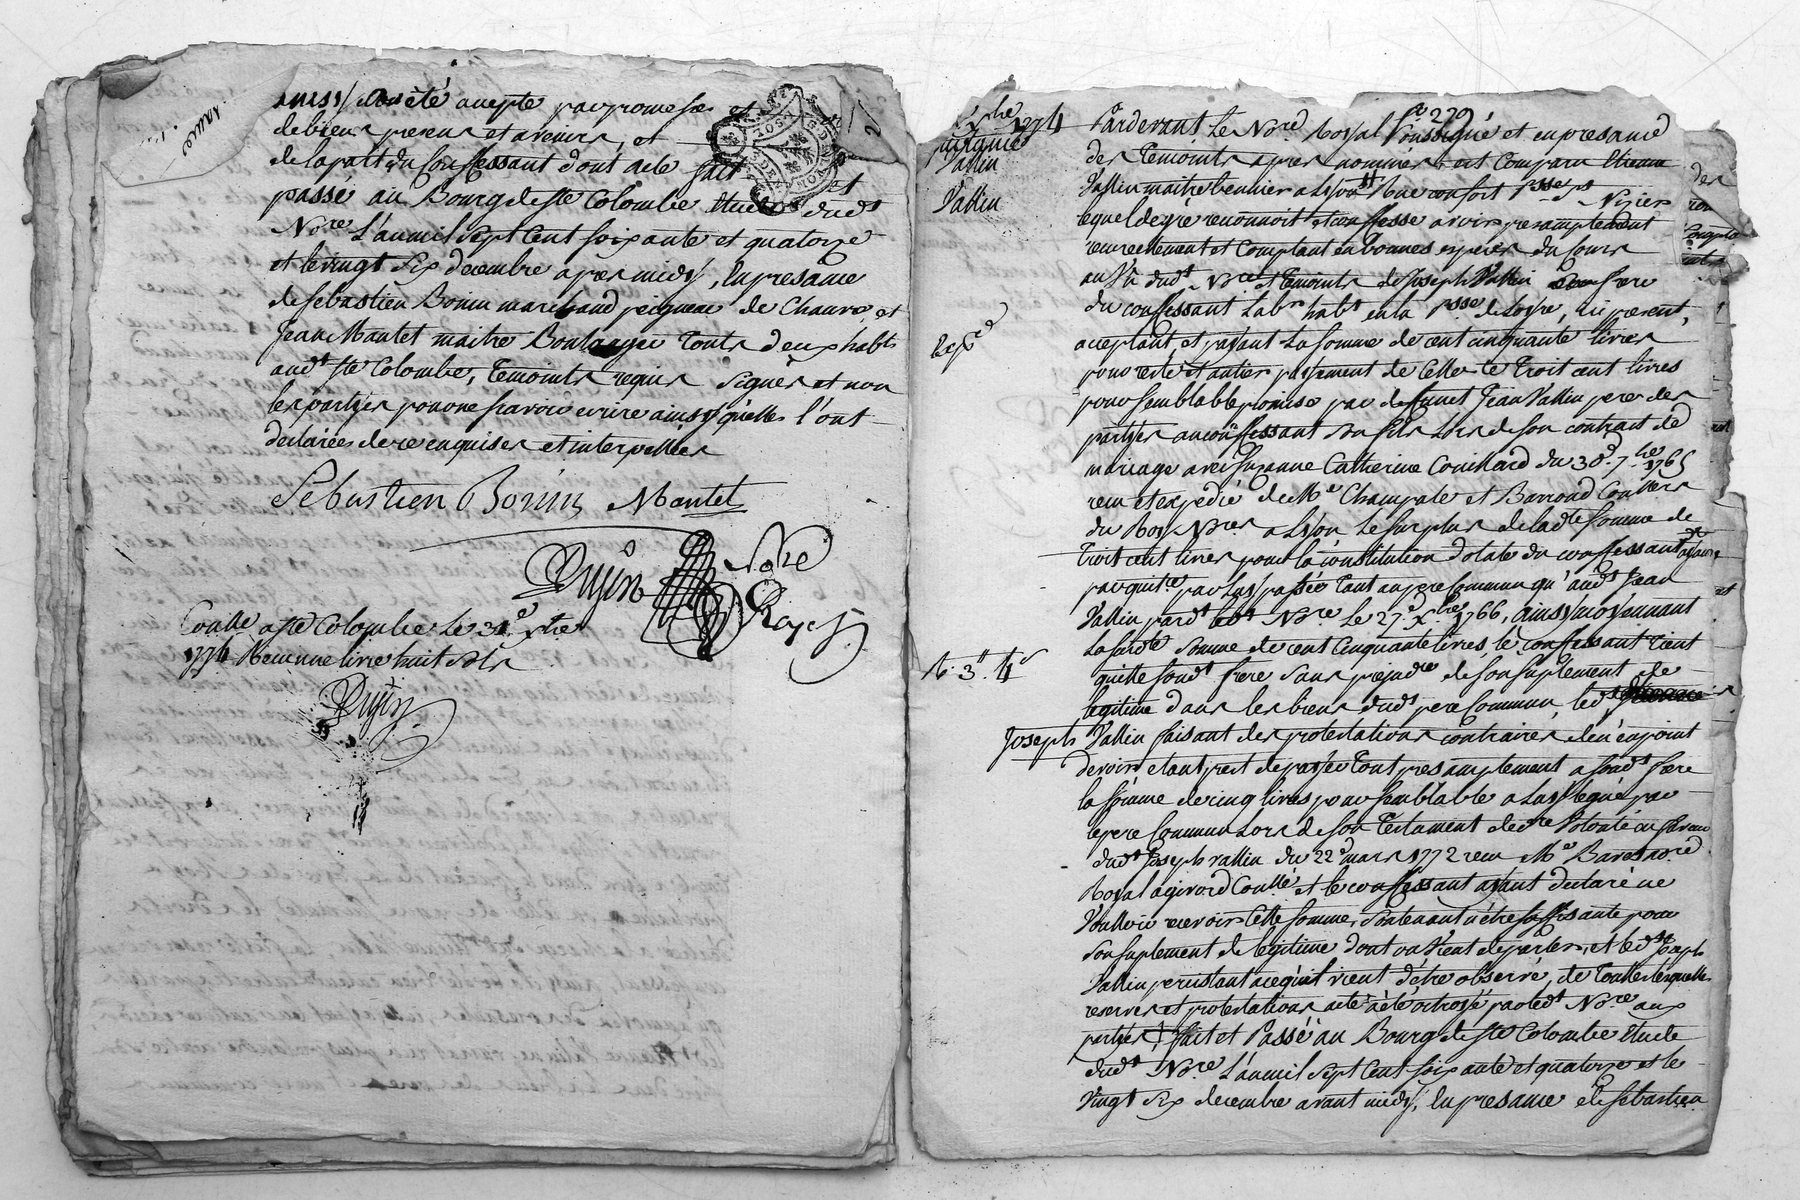 ainsy a été accepté par promesse et
de biens presens et avenirs, et
de la part du confessant dont acte fait et
passé au Bourg de Ste Colombe Etude dudt
Nore. L'an mil sept cent soixante et quatorze
et le vingt six decembre apres midy, En presance
de Sebastien Bonin marchand peigneur de Chanvre et
Jean Mantet maitre Boulanger touts deux habts
audt Ste Colombe, Temoints requis Signés et non
les partyes pour ne sçavoir ecrire ainsy qu'elles l'ont
declarées de ce enquises et interpellées
Sebastien Bonin Mantet
Dujin Nore
Royal
Conlle a Ste Colombe Le 31e Xbre
1774 Reçu une livre huit sols
Dujin
26 Xbre 1774
quittance
Vallin
Vallin
Expé
C. 3tt 4s
fo 279
Pardevant Le Nore. Royal Soussigné et en presance
des Temoints apres nommés, est Comparu Etienne
Vallin maitre bennier a Lyon Rue confort Psse St Nizier
lequel de gré reconnoit et confesse avoir presamptement
reuellement et Comptant en bonnes especes du Cours
au Vû dudt Nore et temoints de Joseph Vallin son frere
du confessant Labr habt en la Psse de Loyre, icy present,
acceptant et payant La somme de cent cinquante livres
pour reste et entier payement de Celle de Troit cent livres
pour semblable promise par deffunct Jean Vallin pere des
partyes au confessant Son fils Lors de son contract de
mariage avec Suzanne Catherine Couillard du 30e 7bre 1765
reçu et expedié de Me Champale et Barroud Conllers
du Roy Nores a Lyon Le surplus de la dte somme de
Troit cent livres pour la constitution dotale du confessant
par quitce par Luy passée tant au pere Commun qu'audt Jean
Vallin pardt ledt Nore Le 27e Xbre 1766, Ainsy moyennant
La susdte Somme de cent Cinquante livres, le confessant tient
quitte sondt frere Sans prejudce de son suplement de
legitime dans les biens dudt pere Commun, ledt
Joseph Vallin faisant des protestations contraires de n'en point
devoir etant prest de payer tout presamptement a sondt frere
la somme de cinq livres pour semblable a Luy leguée par
le pere Commun Lors de son Testament de dre Volonté en faveur
dudt Joseph Vallin du 22e mars 1772 reçu Me
Royal a givord Conllé et le confessant ayant declaré ne
Vouloir recevoir Cette somme, Soutenant n'être suffisante pour
Son suplement de legitime dont on Vient de parler, et ledt Joseph
Vallin persistant a ce qui vient d'être observé, de Touttes lesquelles
reserves et protestations acte a été octroyé par ledt Nore aux
partyes Fait et Passé au Bourg de Ste Colombe Etude
dudt Nore L'an mil sept Cent soixante et quatorze et le
Vingt Six decembre avant midy, En presance de Sebastien